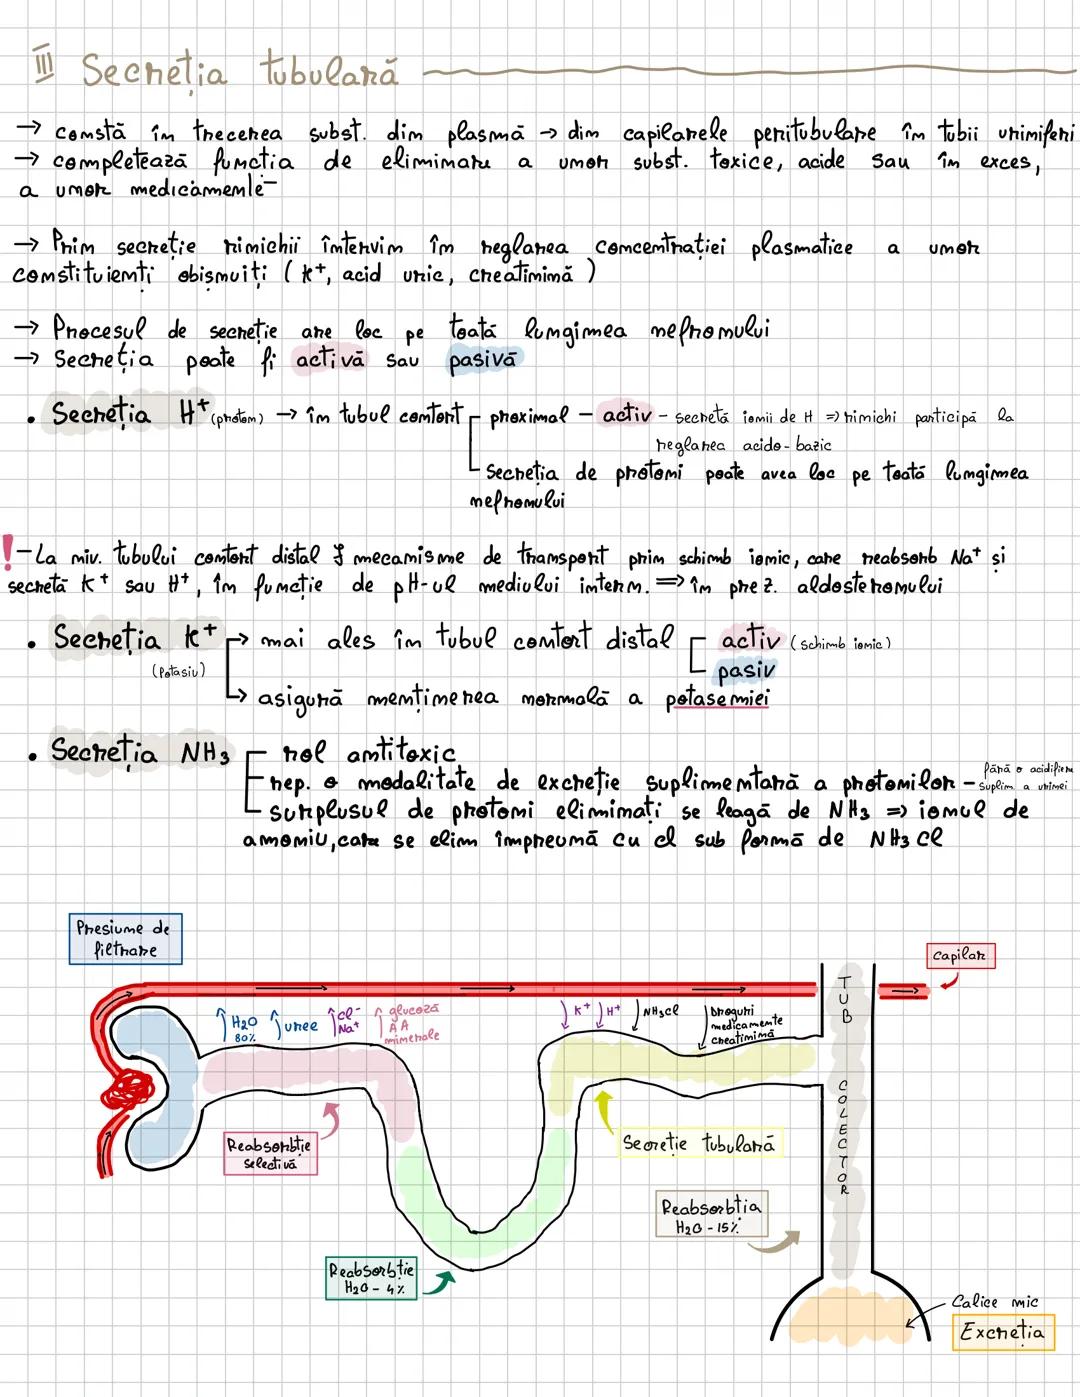 III Secreția tubulară
→ constă în trecerea subst. din plasmă → din capilarele peritubulare în tubii uriniferi
→ completează funcția de eliminare a unor subst. toxice, acide sau în exces,
a unor medicamente
→ Prin secreție rinichii intervin în reglarea concentrației plasmatice a unor
constituienți obișnuiți (K+, acid uric, creatinină)
→ Procesul de secreție are loc pe toată lungimea nefronului
→ Secreția poate fi activă sau pasivă
• Secreția H+ (proton) → în tubul contort proximal - activ - secretă ionii de H => rinichi participă la
reglarea acido-bazic
Secreția de protoni poate avea loc pe toată lungimea
nefronului
! - La niv. tubului contort distal ∃ mecanisme de transport prin schimb ionic, care reabsorb Na+ și
secretă K+ sau H+, în funcție de pH-ul mediului intern. => în prez. aldosteronului
• Secreția K+ → mai ales în tubul contort distal activ (schimb ionic)
(Potasiu) pasiv
→ asigură menținerea normală a potasemiei
• Secreția NH3 rol antitoxic
rep. o modalitate de excreție suplimentară a protonilor - fără o acidifiere
suplim. a urinei
surplusul de protoni eliminați se leagă de NH3 => ionul de
amoniu, care se elim împreună cu Cl sub formă de NH3 Cl
Presiune de
filtrare
Capilar
↑ H2O
80%
↑ uree
↑ Cl-
Na+
↑ glucoză
AA
minerale
↓ K+
↓ H+
↓ NH3Cl
↓ Droguri
medicamente
creatinină
TUB COLECTOR
Reabsorbție
selectivă
Secreție tubulară
Reabsorbția
H2O - 15%
Reabsorbție
H2O - 4%
Calice mic
Excreția